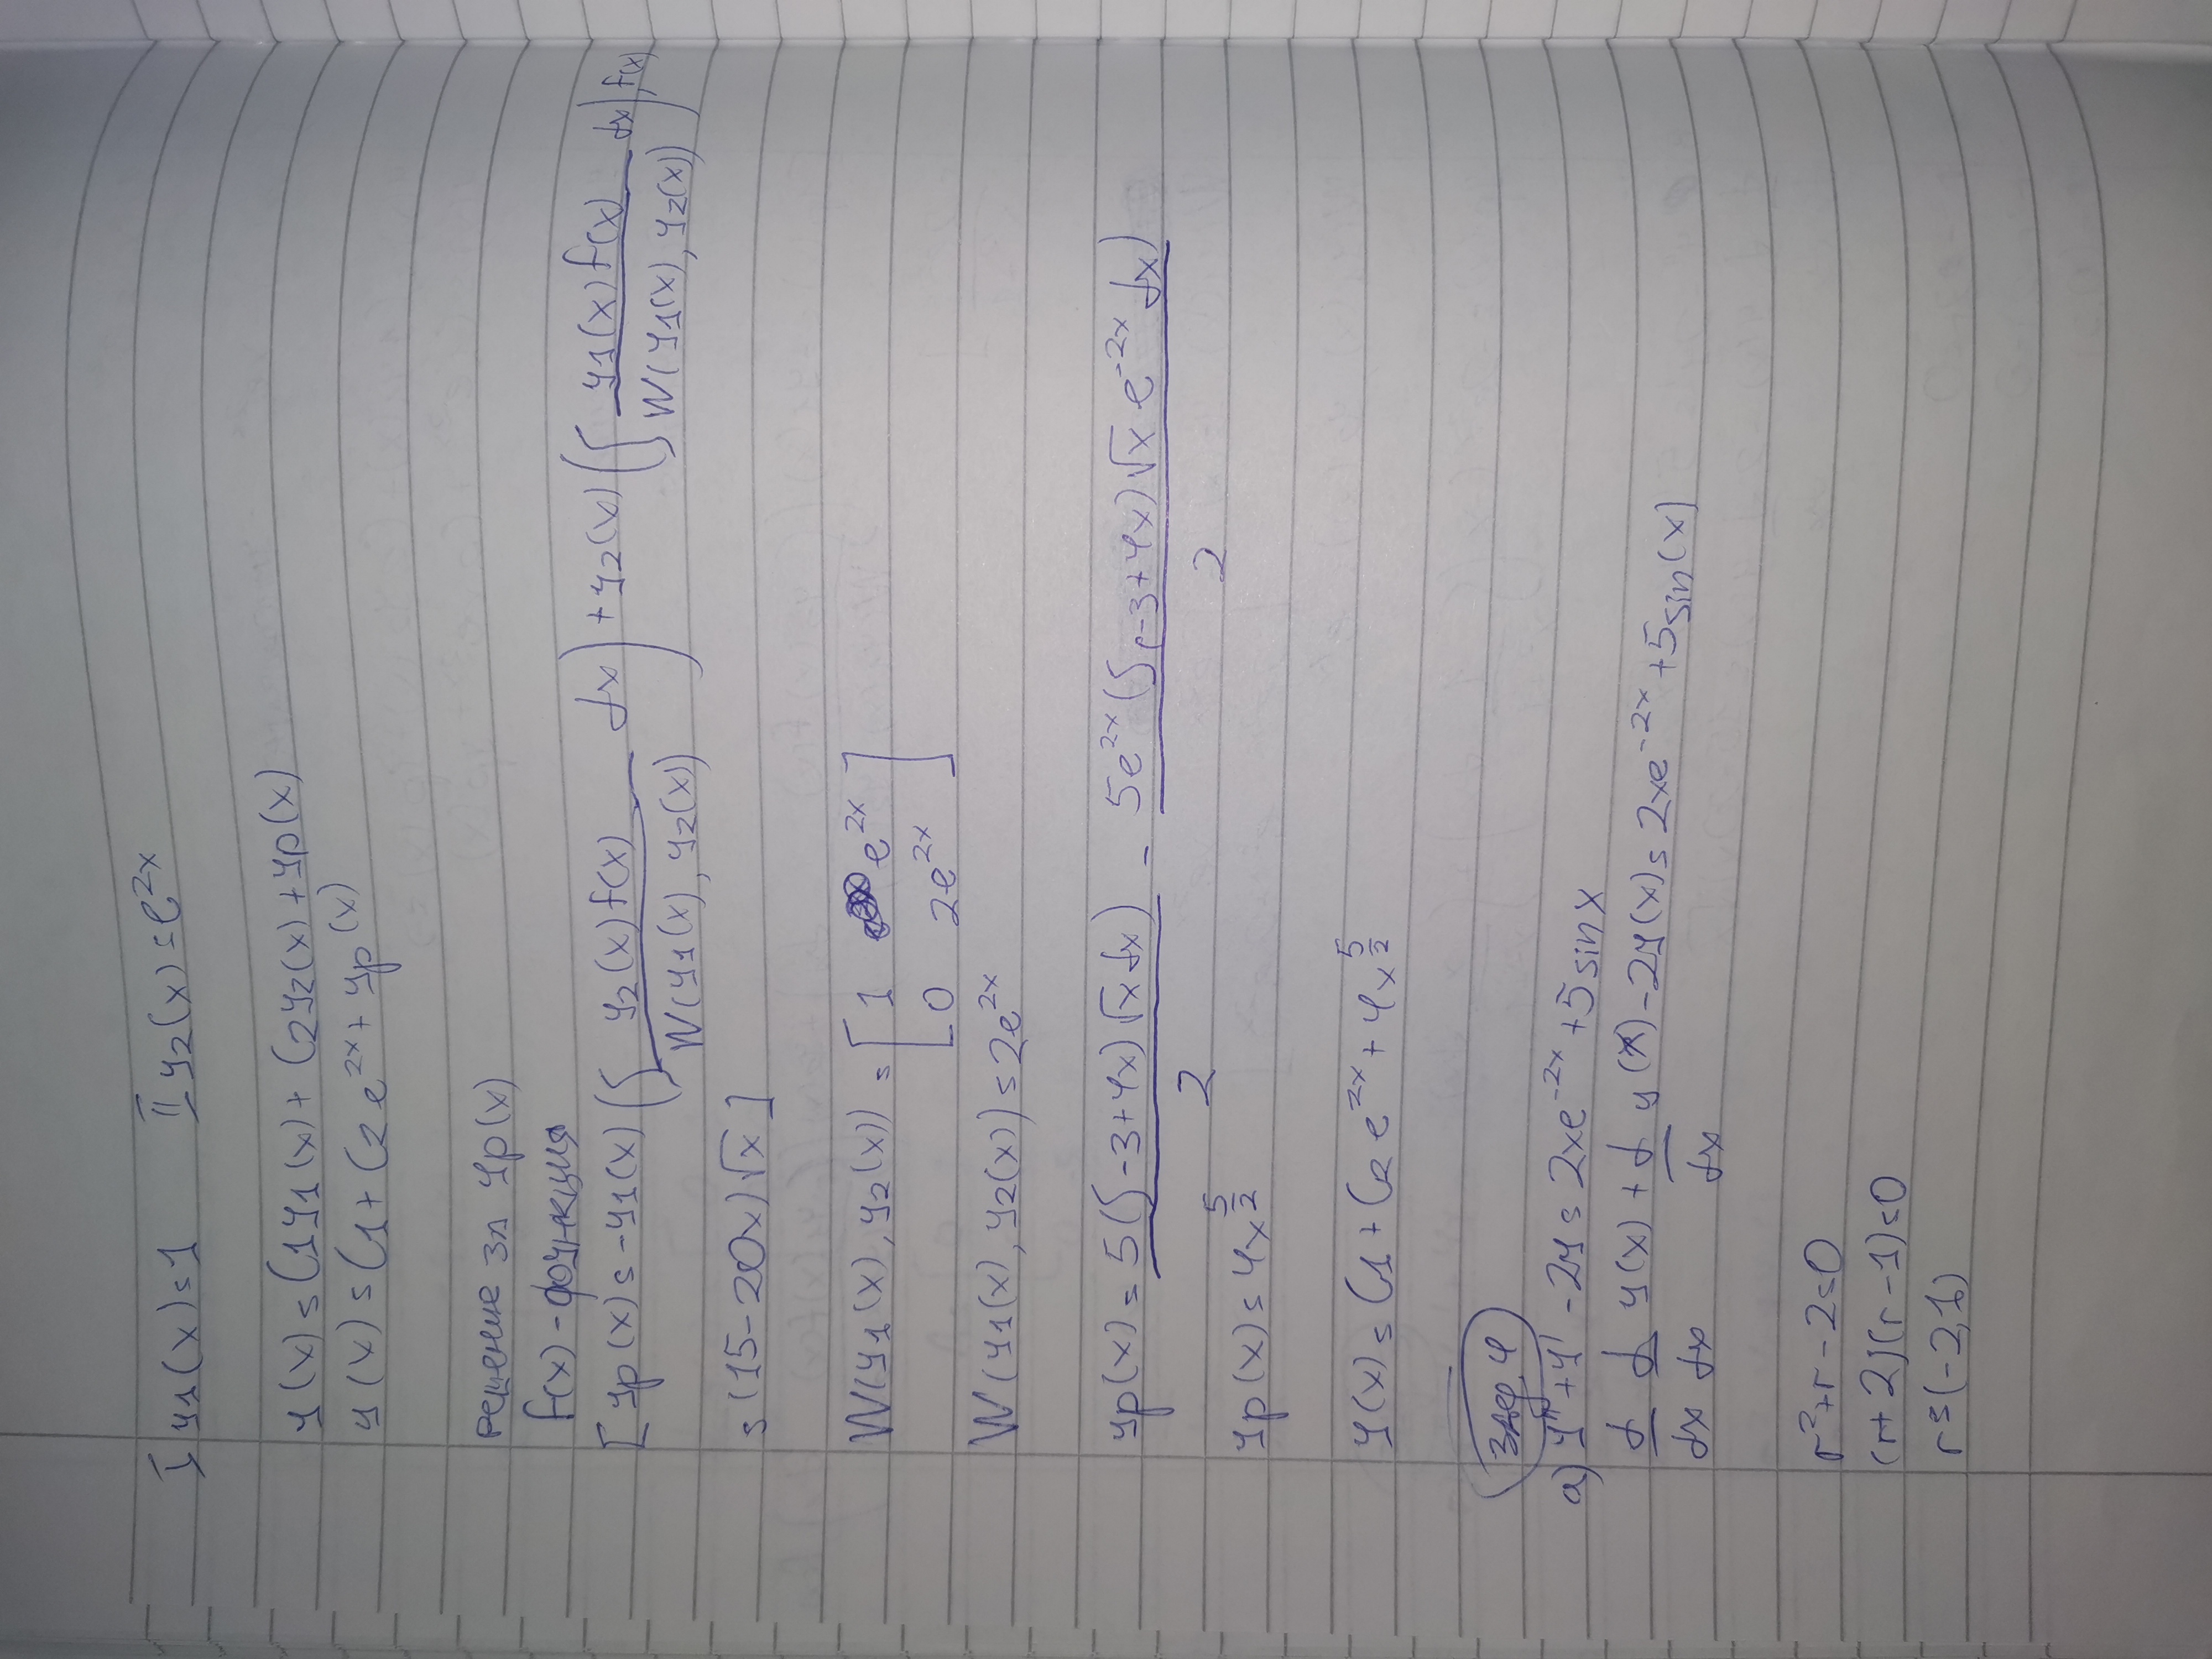 I y1(x)=1 II y2(x)=e^2x
y(x)=C1y1(x)+C2y2(x)+yp(x)
y(x)=C1+C2e^2x+yp(x)
решение за yp(x)
f(x)-функция
[yp(x)=-y1(x)(∫ y2(x)f(x) / W(y1(x),y2(x)) dx)+y2(x)(∫ y1(x)f(x) / W(y1(x),y2(x)) dx),f(x)
=(15-20x)√x]
W(y1(x),y2(x))=[1 e^2x
0 2e^2x]
W(y1(x),y2(x))=2e^2x
yp(x)=5(∫-3+4x)√x dx) / 2 - 5e^2x(∫(-3+4x)√x e^-2x dx) / 2
yp(x)=4x^5/2
y(x)=C1+C2e^2x+4x^5/2
зад. 4
а) y''+y'-2y=2xe^-2x+5sinx
d/dx d/dx y(x)+d/dx y(x)-2y(x)=2xe^-2x+5sin(x)
r^2+r-2=0
(r+2)(r-1)=0
r=(-2,1)